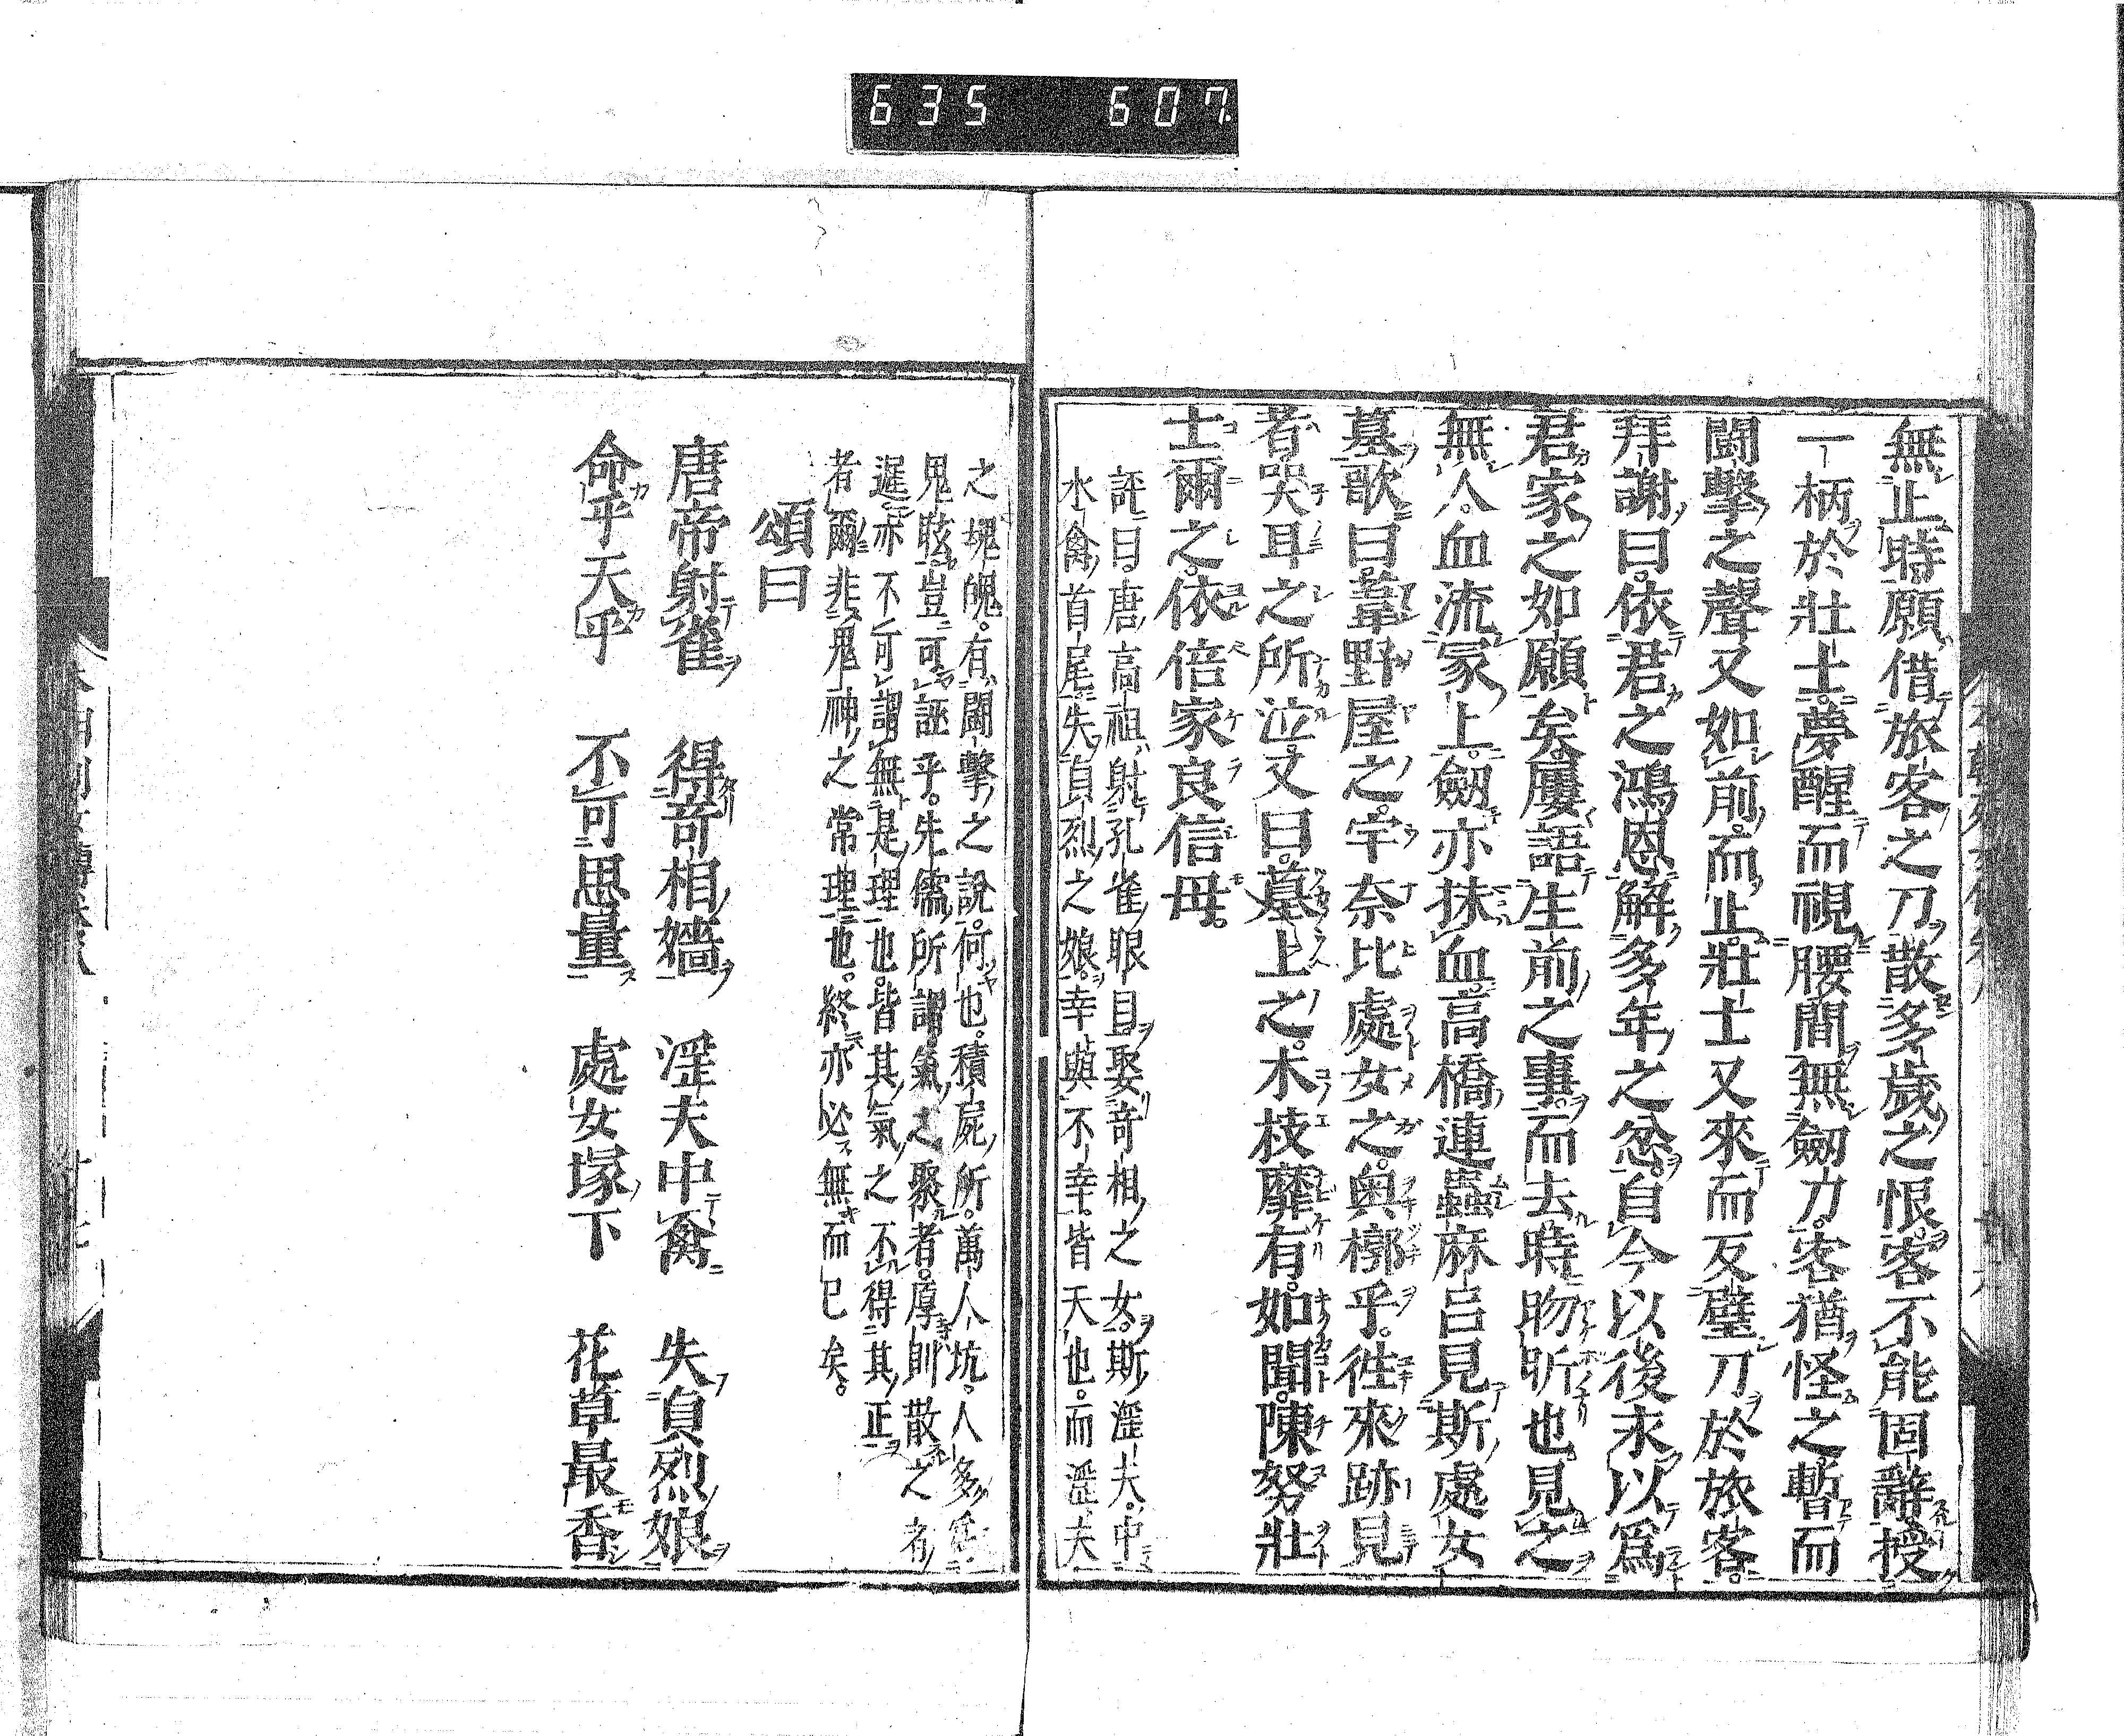 635 607
無止時願借旅客之刀散多歲之恨客不能固辭授
一柄於壯士夢醒而視腰間無劒刀客猶怪之暫而
鬪擊之聲又如前而止壯士又來而反璧刀於旅客
拜謝曰依君之鴻恩解多年之忿自今以後永以爲
君家之如願矣屢語生前之事而去時昒昕也見之
無人血流冢上劒亦抹血高橋連蟲麻呂見斯處女
墓歌曰葦野屋之宇奈比處女之奥槨乎徃來跡見
者哭耳之所泣又曰墓上之木枝靡有如聞陳努壯
士爾之依倍家良信母
評曰唐高祖射孔雀眼目娶奇相之女斯涇夫中
水禽首尾失貞烈之娘幸與不幸皆天也而涇夫
之塊魄有鬪擊之說何也積屍所萬人坑人多
鬼眩豈可誣乎先儒所謂氣之聚者厚則散之者
遲亦不可謂無是理也皆其氣之不得其正
者爾非鬼神之常理也終亦必無而已矣
頌曰
唐帝射雀 得奇相嬙 涇夫中禽 失貞烈娘
命乎天乎 不可思量 處女塚下 花草最香